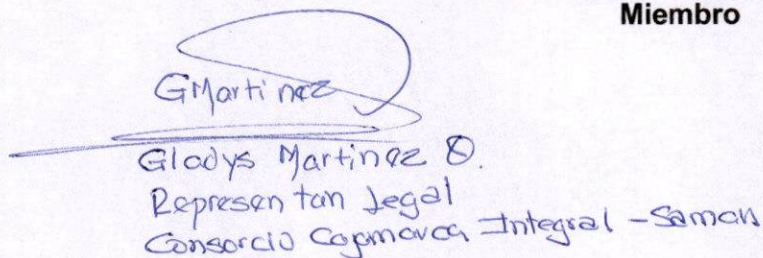 Miembro
GMartinez
Gladys Martinez O.
Representan Legal
Consorcio Cajamarca Integral - Saman